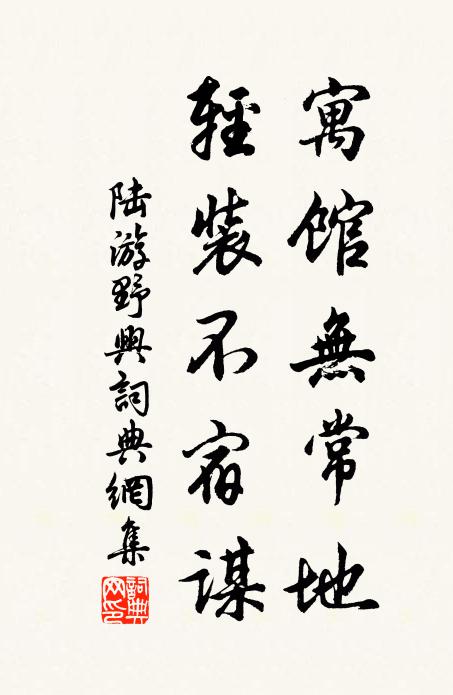 寓館無常地
輕裝不宿謀
陸游野興詞典網集
詞典網印